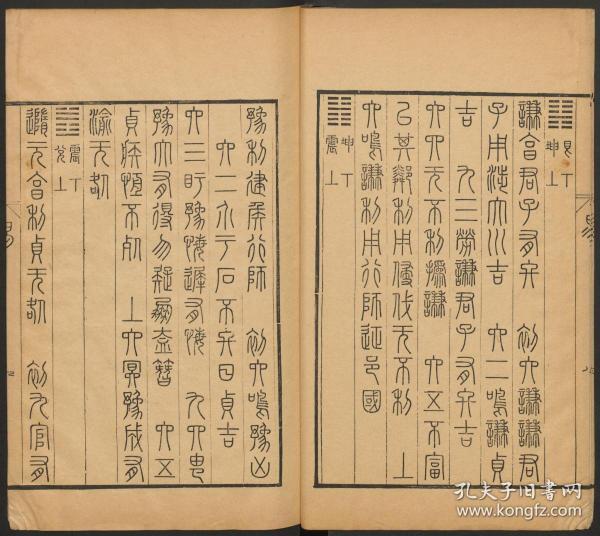 ䷎ 艮下坤上
謙亨君子有終 初六謙謙君
子用涉大川吉 六二鳴謙貞
吉 九三勞謙君子有終吉
六四无不利撝謙 六五不富
以其鄰利用侵伐无不利 上
六鳴謙利用行師征邑國
䷏ 坤下震上
豫利建侯行師 初六鳴豫凶
六二介于石不終日貞吉
六三盱豫悔遲有悔 九四由
豫大有得勿疑朋盍簪 六五
貞疾恆不死 上六冥豫成有
渝无咎
䷐ 震下兌上
隨元亨利貞无咎 初九官有
孔夫子旧书网
www.kongfz.com